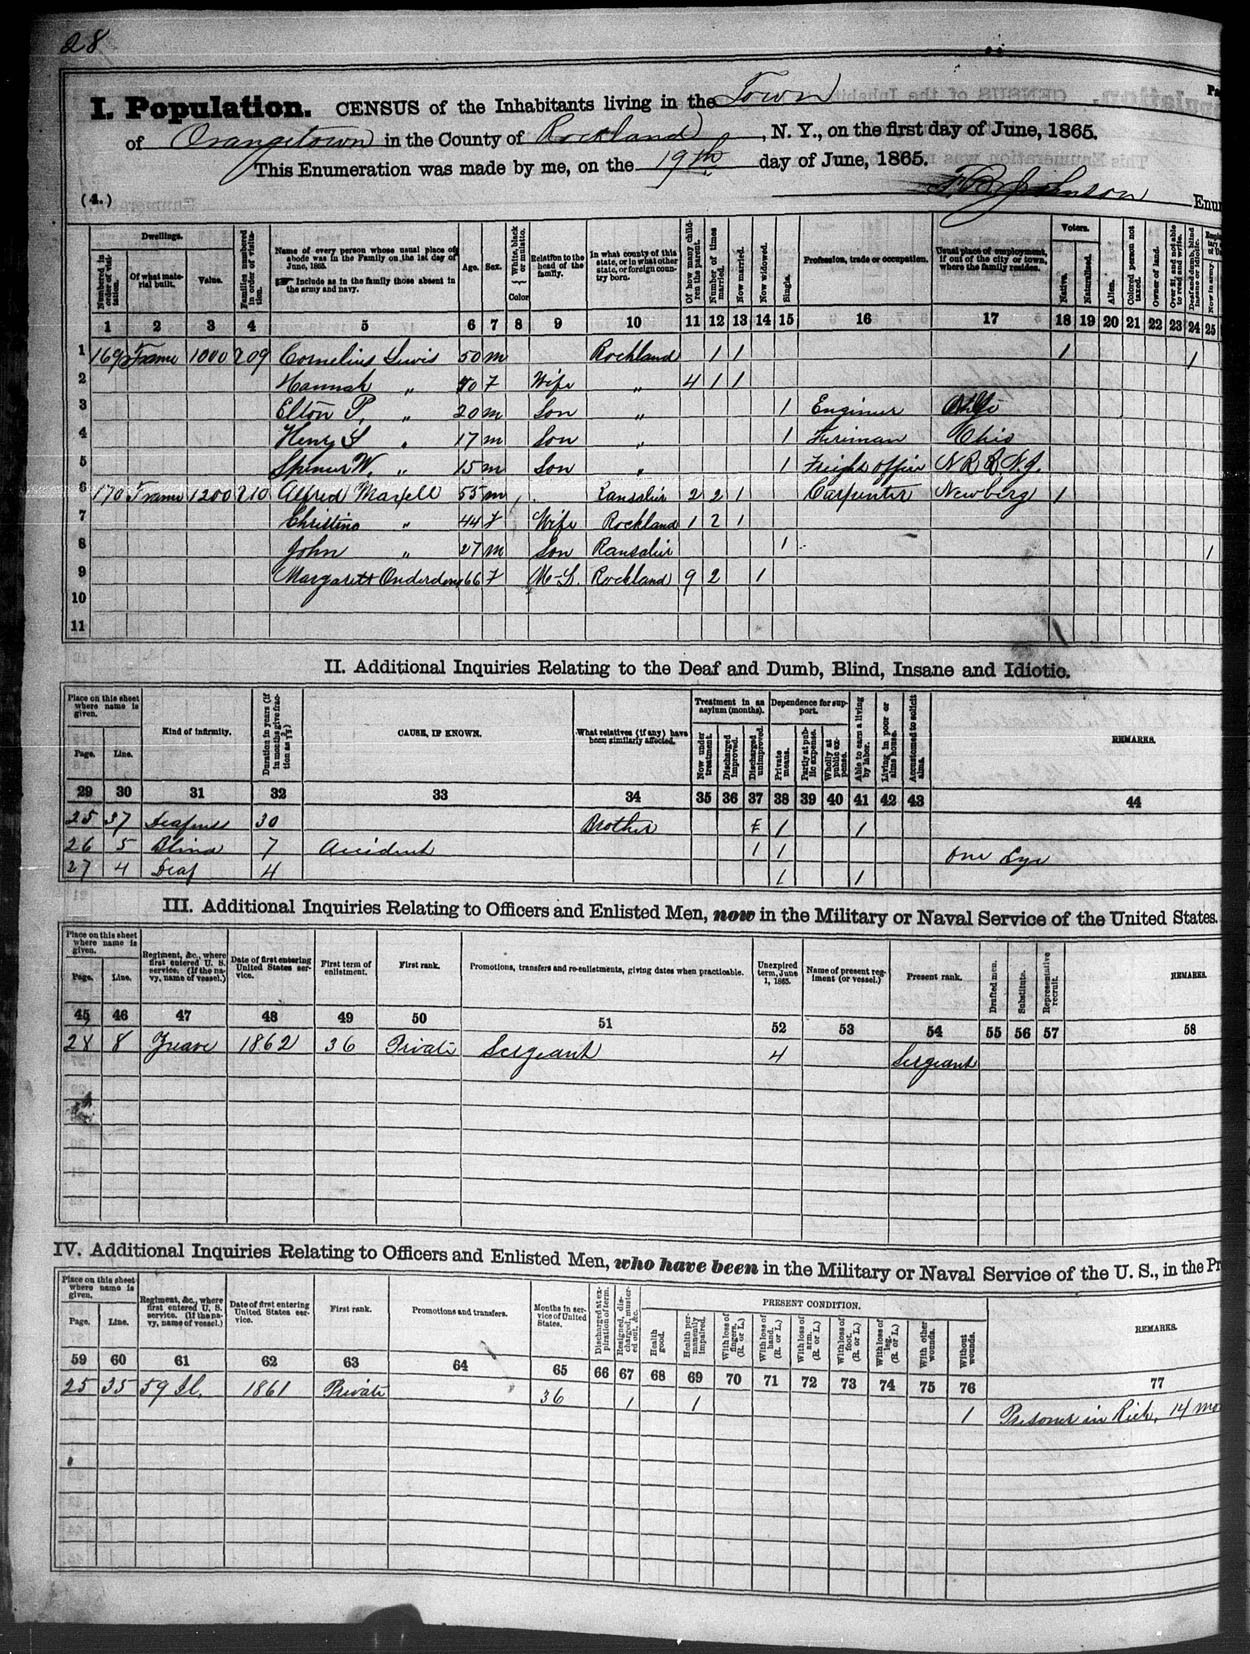 28
I. Population. CENSUS of the Inhabitants living in the Town
of Orangetown in the County of Rockland, N. Y., on the first day of June, 1865.
This Enumeration was made by me, on the 19th day of June, 1865.
(4.) Johnson Enu
Dwellings. Voters.
Numbered in order of visitation. Of what material built. Value. Families numbered in order of visitation. Name of every person whose usual place of abode was in the Family on the 1st day of June, 1865. Include as in the family those absent in the army and navy. Age. Sex. White, black or mulatto. Color Relation to the head of the family. In what county of this state, or in what other state, or foreign country born. Of how many children the parent. Number of times married. Now married. Now widowed. Single. Profession, trade or occupation. Usual place of employment, if out of the city or town, where the family resides. Native. Naturalized. Alien. Colored person not taxed. Owner of land. Over 21, and not able to read and write. Deaf and dumb, blind insane or idiotic. Now in army
1 2 3 4 5 6 7 8 9 10 11 12 13 14 15 16 17 18 19 20 21 22 23 24 25
1 169 Frame 1000 209 Cornelius Lewis 50 m Rockland 1 1 1 1
2 Hannah " 40 F Wife " 4 1 1
3 Elton P. " 20 m Son " 1 Engineer
4 Henry S. " 17 m Son " 1 Fireman Ohio
5 " 15 m Son " 1 Freight office N.R.R. N.J.
6 170 Frame 1200 210 Alfred 55 m Ransalier 2 2 1 Carpenter Newberg 1
7 Christina " 44 F Wife Rockland 1 2 1
8 John " 27 m Son Ransalier 1 1
9 Margarett Onderdonk 66 F M-L. Rockland 9 2 1
10
11
II. Additional Inquiries Relating to the Deaf and Dumb, Blind, Insane and Idiotic.
Place on this sheet where name is given. Treatment in an asylum (months). Dependence for support.
Page. Line. Kind of infirmity. Duration in years (if in months give fraction as 7/12) CAUSE, IF KNOWN. What relatives (if any) have been similarly affected. Now under treatment. Discharged improved. Discharged unimproved. Private means. Partly at public expense. Wholly at public expense. Able to earn a living by labor. Living in poor or alms house. Accustomed to solicit alms. REMARKS.
29 30 31 32 33 34 35 36 37 38 39 40 41 42 43 44
25 37 Deafness 30 Brother 1 1
26 5 Blind 7 Accident 1 1 One Eye
27 4 Deaf 4 1 1
III. Additional Inquiries Relating to Officers and Enlisted Men, now in the Military or Naval Service of the United States.
Place on this sheet where name is given.
Page. Line. Regiment, &c., where first entered U. S. service. (If the navy, name of vessel.) Date of first entering United States service. First term of enlistment. First rank. Promotions, transfers and re-enlistments, giving dates when practicable. Unexpired term, June 1, 1865. Name of present regiment (or vessel.) Present rank. Drafted men. Substitute. Representative recruit. REMARKS.
45 46 47 48 49 50 51 52 53 54 55 56 57 58
28 8 Zuave 1862 36 Private Sergeant 4 Sergeant
IV. Additional Inquiries Relating to Officers and Enlisted Men, who have been in the Military or Naval Service of the U. S., in the Pr
Place on this sheet where name is given. PRESENT CONDITION.
Page. Line. Regiment, &c., where first entered U. S. service. (If the navy, name of vessel.) Date of first entering United States service. First rank. Promotions and transfers. Months in service of United States. Discharged at expiration of term. Resigned, discharged, mustered out, &c. Health good. Health permanently impaired. With loss of fingers. (R. or L.) With loss of hand. (R. or L.) With loss of arm. (R. or L.) With loss of foot. (R. or L.) With loss of leg. (R. or L.) With other wounds. Without wounds. REMARKS.
59 60 61 62 63 64 65 66 67 68 69 70 71 72 73 74 75 76 77
25 35 59 1861 Private 36 1 1
1 Prisoner in Rich. 14 mo